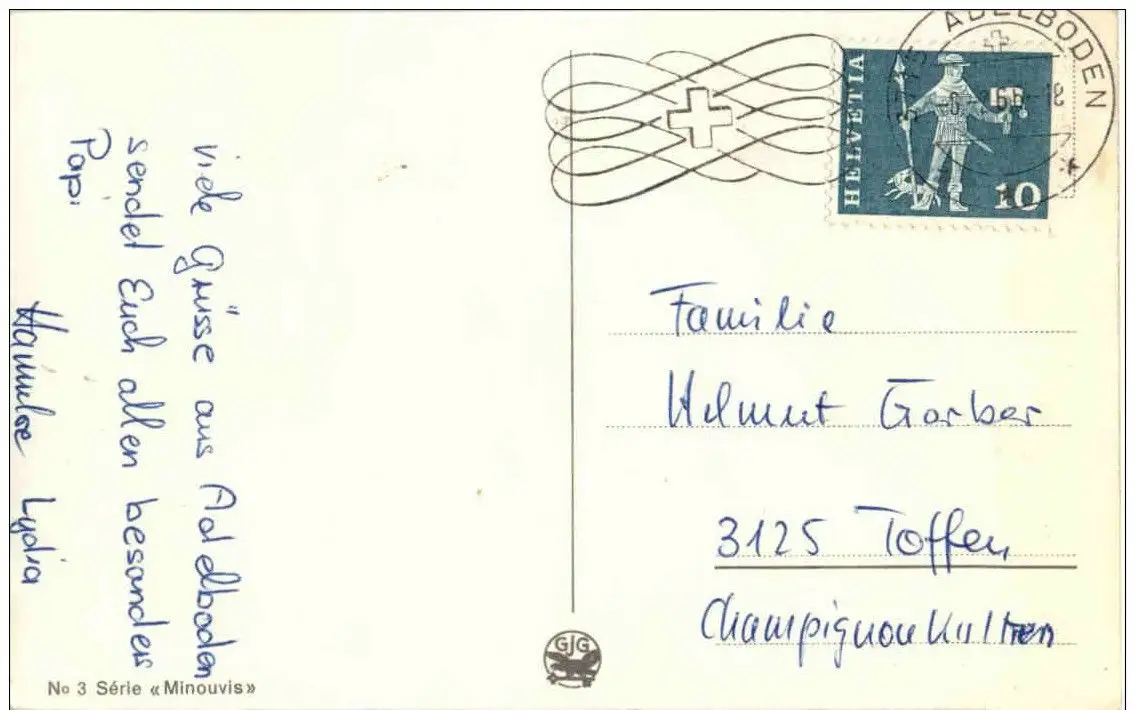 viele Grüsse aus Adelboden
sendet Euch allen besonders
Papi
Lydia
ADELBODEN
HELVETIA
10
Familie
Helmut Garber
3125 Toffen
Champignonkulturen
GJG
No 3 Série «Minouvis»